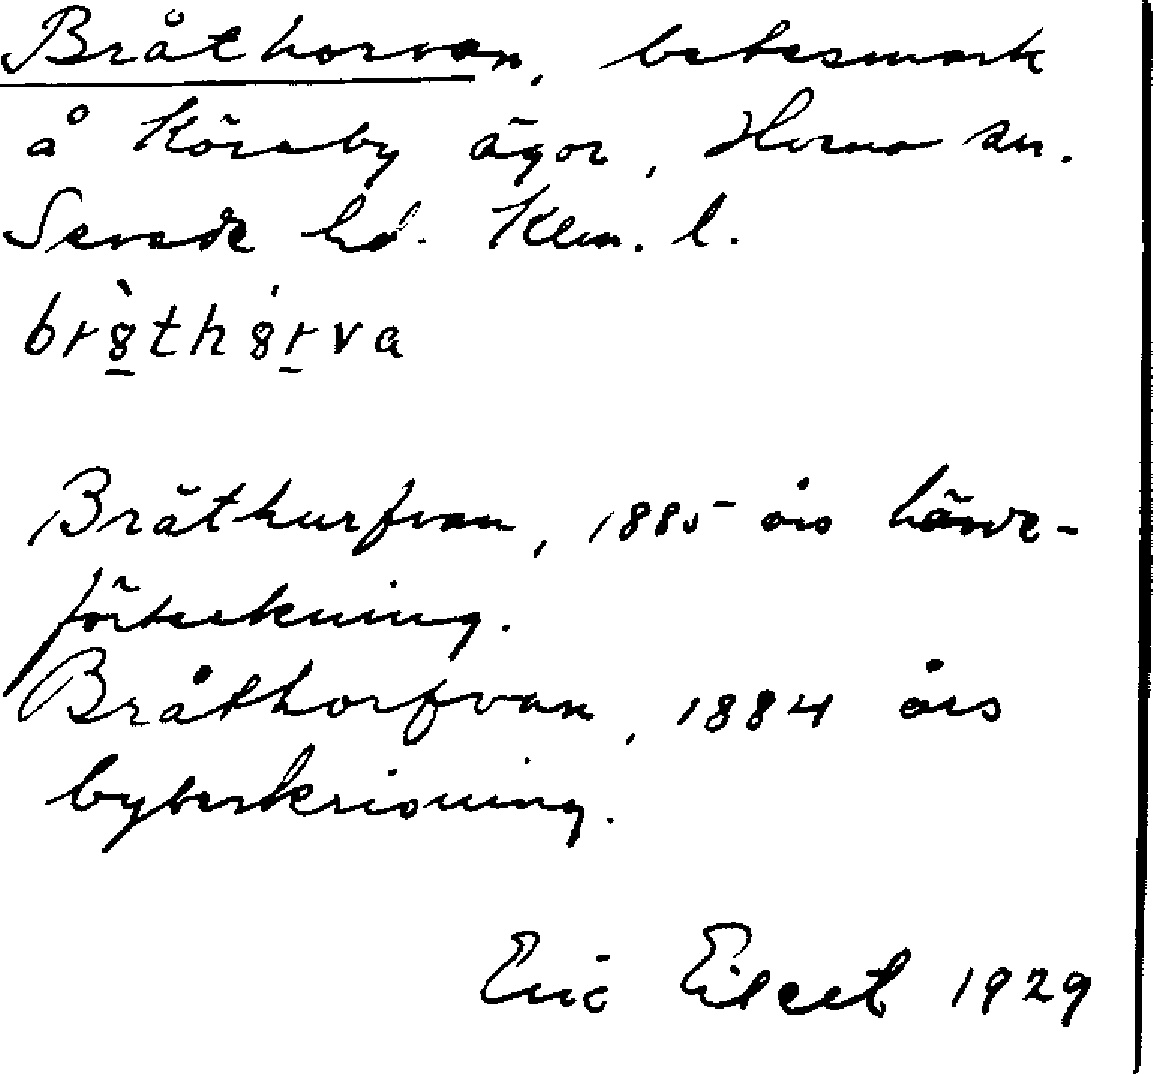 Bråthorvan, betesmark
å Körnby ägor, Horns sn.
Sevede hd. Klm. l.
br8̱̀th8́r̲va
Bråthurfvan, 1885 års hävde-
förteckning.
Bråthorfvan, 1884 års
bybeskrivning.
Eric 1929